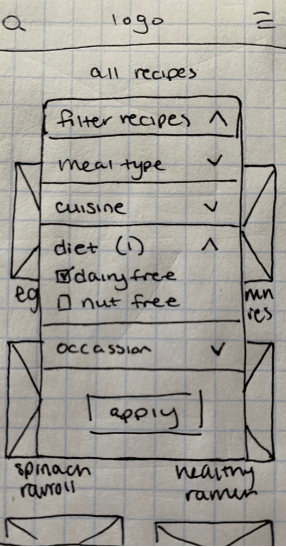 logo
all recipes
filter recipes
meal type
cuisine
diet (1)
dairy free
nut free
eg
res
occassion
apply
spinach
healthy
ramen